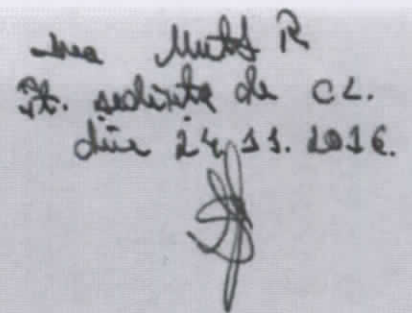 Mutt R
Pt. sedința de CL.
din 24.11.2016.